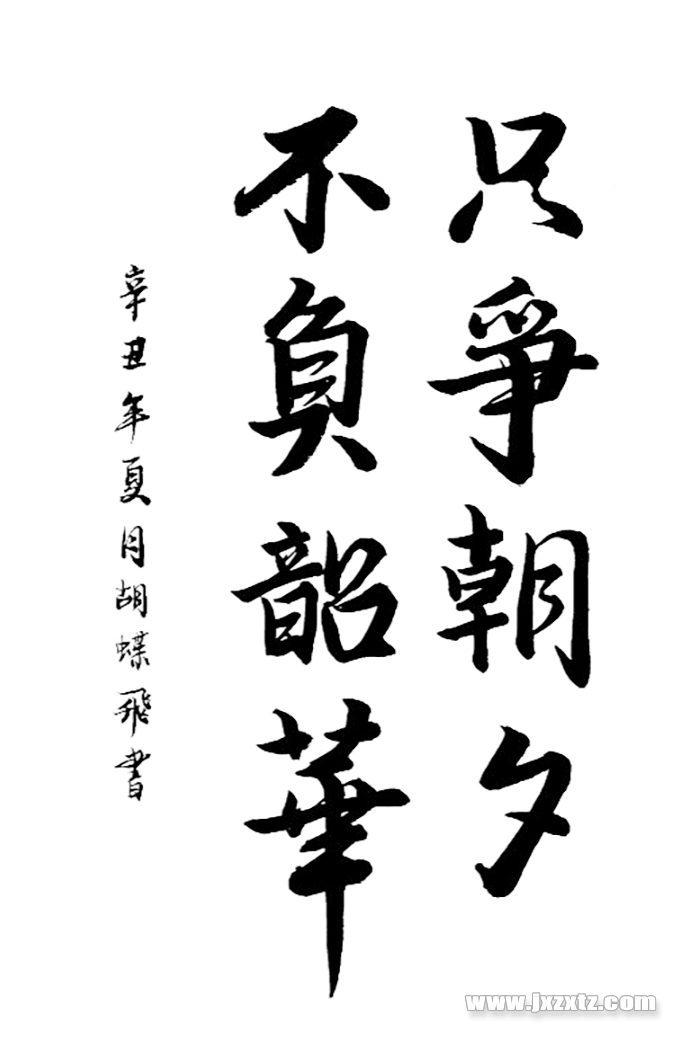 只爭朝夕
不負韶華
辛丑年夏月胡蝶飛書
www.jxzxtz.com